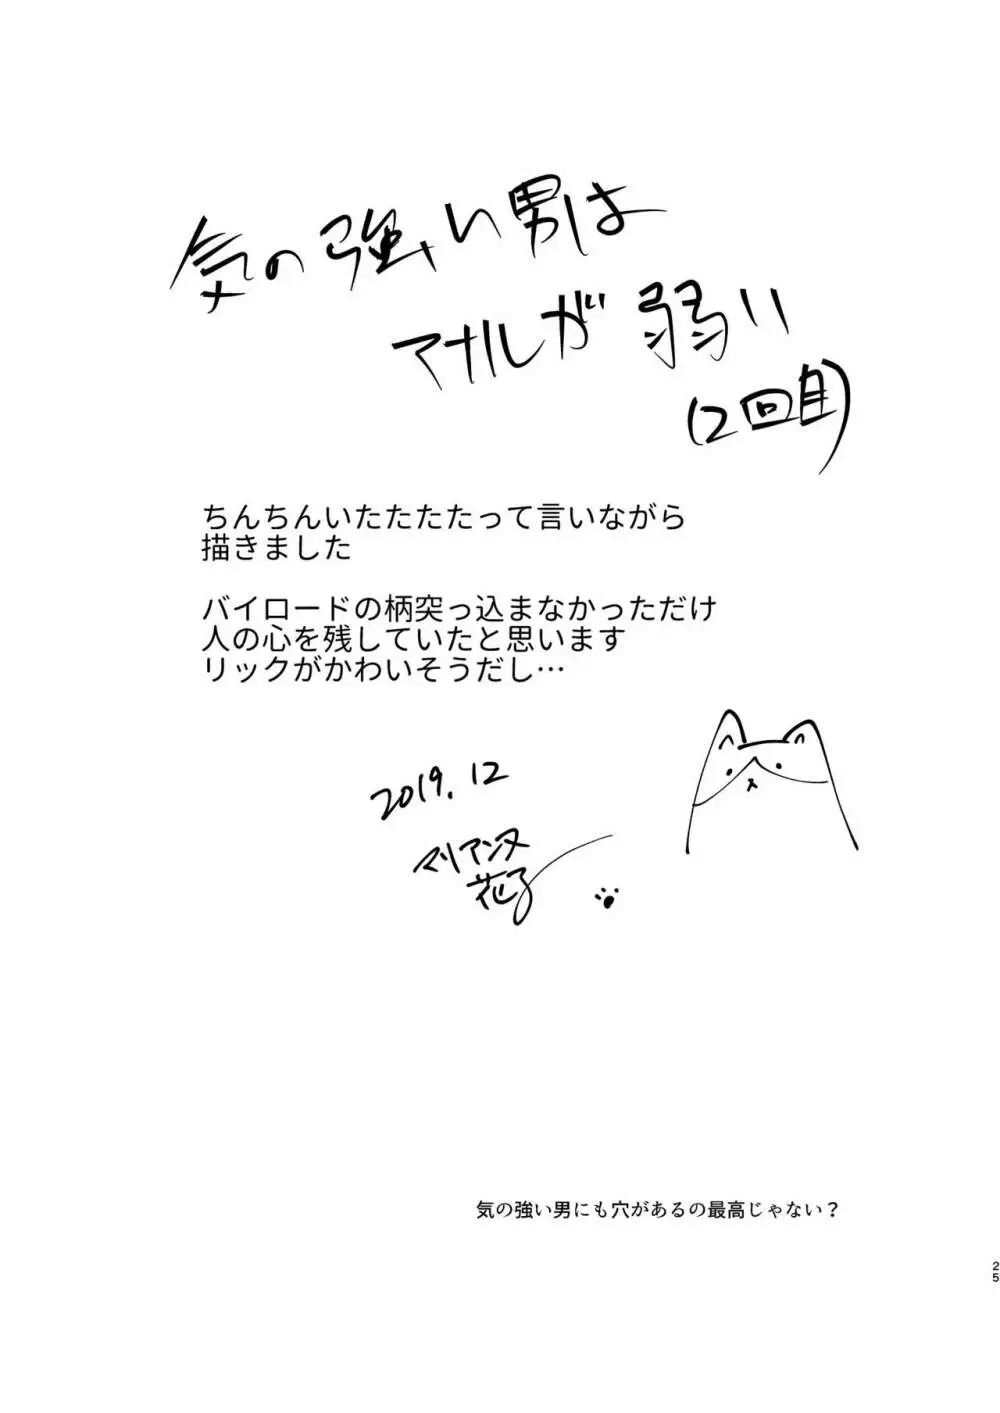 気の強い男は
アナルが弱い
(2回目)
ちんちんいたたたたって言いながら
描きました
バイロードの柄突っ込まなかっただけ
人の心を残していたと思います
リックがかわいそうだし…
2019.12
マリアンヌ
花子
気の強い男にも穴があるの最高じゃない？
25